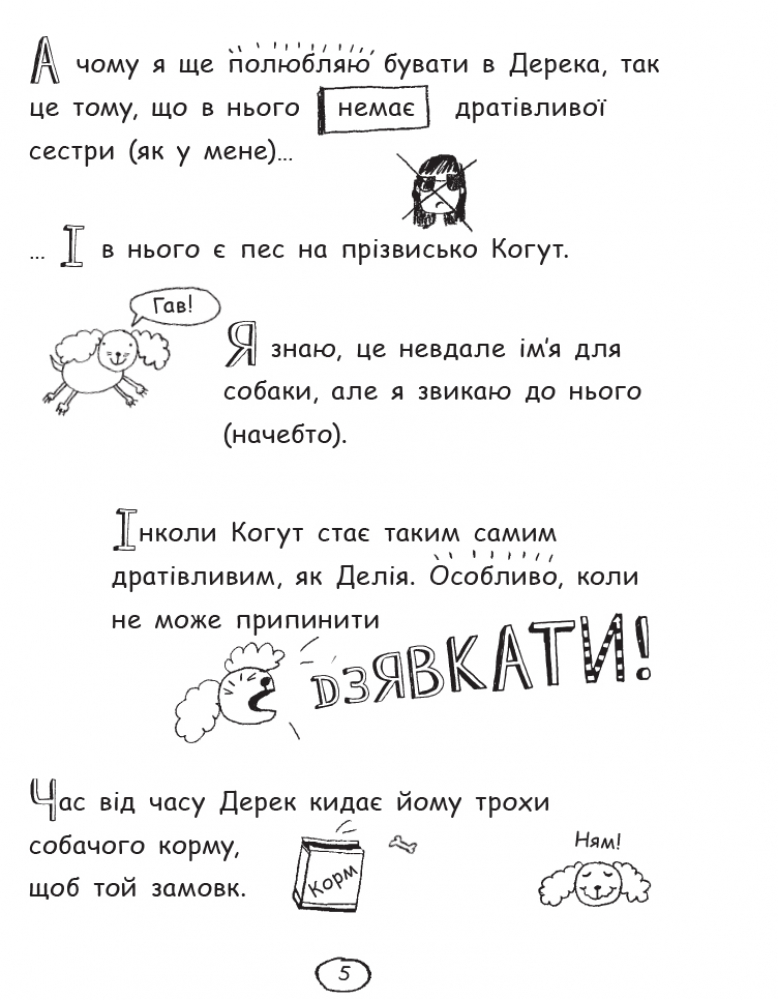 А чому я ще полюбляю бувати в Дерека, так
це тому, що в нього немає дратівливої
сестри (як у мене)…
… І в нього є пес на прізвисько Когут.
Гав!
Я знаю, це невдале ім’я для
собаки, але я звикаю до нього
(начебто).
Інколи Когут стає таким самим
дратівливим, як Делія. Особливо, коли
не може припинити
ДЗЯВКАТИ!
Час від часу Дерек кидає йому трохи
собачого корму,
щоб той замовк.
Корм
Ням!
5